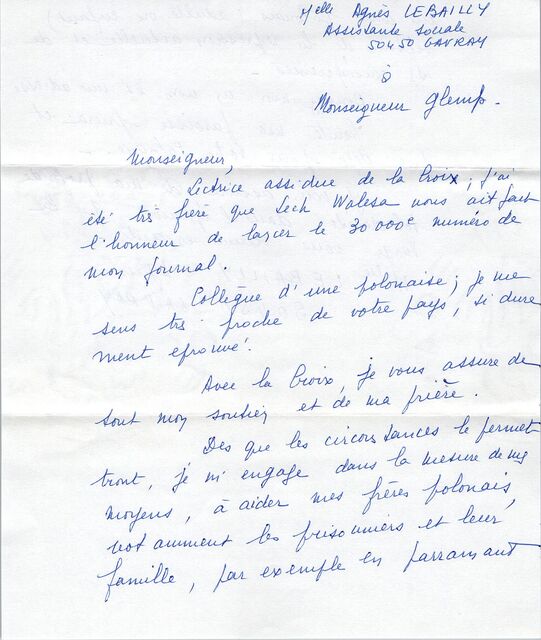 Melle Agnès LEBAILLY
Assistante sociale
50450 GAVRAY
à
Monseigneur Glemp.
Monseigneur,
Lectrice assidue de la Croix ; j'ai
été très fière que Lech Walesa nous ait fait
l'honneur de lancer le 30 000e numéro de
mon journal.
Collègue d'une polonaise ; je me
sens très proche de votre pays, si dure
ment eprouvé.
Avec la Croix, je vous assure de
tout mon soutien et de ma prière.
Dès que les circonstances le permet
tront, je m'engage dans la mesure de mes
moyens, à aider mes frères polonais,
notamment les prisonniers et leur
famille, par exemple en parrainant